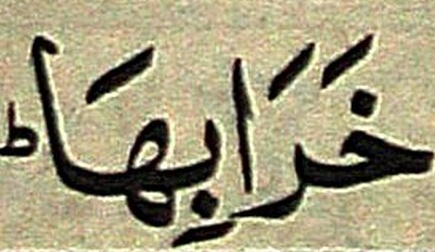 خَرَابِهَاؕ